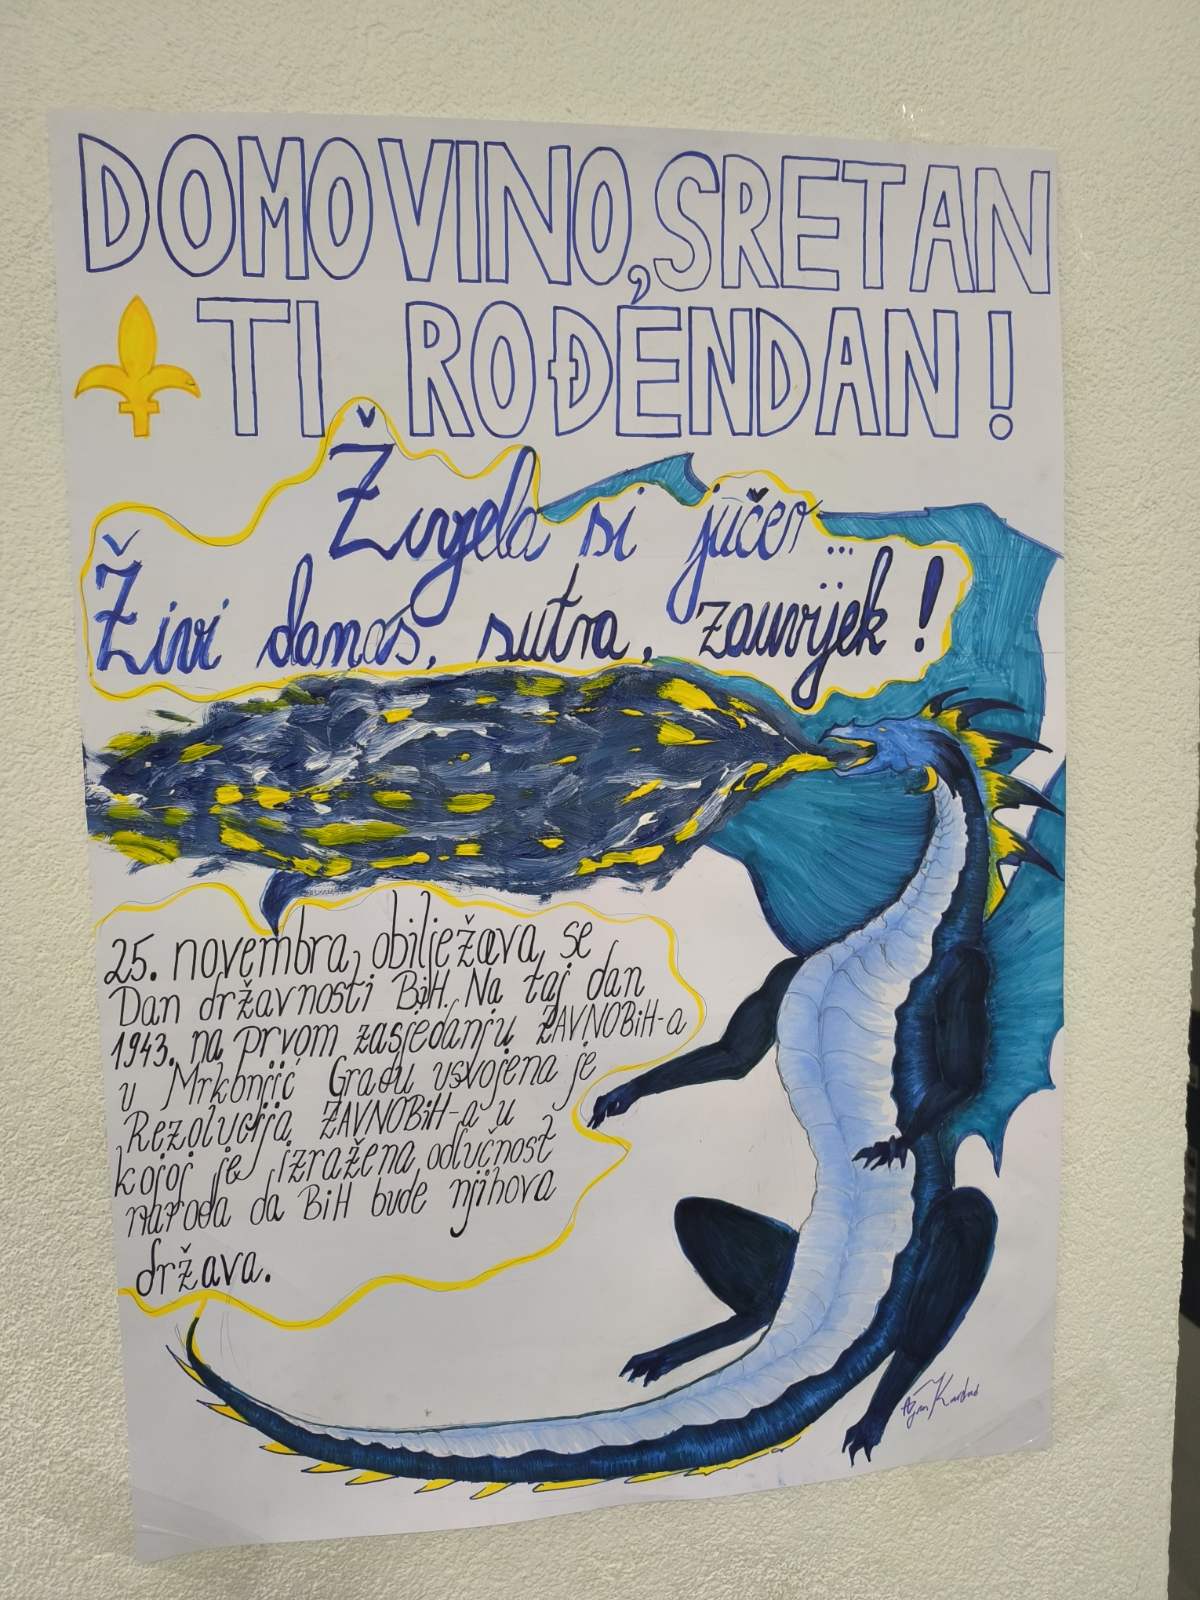 DOMOVINO, SRETAN
TI ROĐENDAN!
Živjela si jučer...
Živi danas, sutra, zauvijek!
25. novembra, obilježava se
Dan državnosti BiH. Na taj dan
1943. na prvom zasjedanju ZAVNOBiH-a
u Mrkonjić Gradu usvojena je
Rezolucija ZAVNOBiH-a u
kojoj je izražena odlučnost
naroda da BiH bude njihova
država.